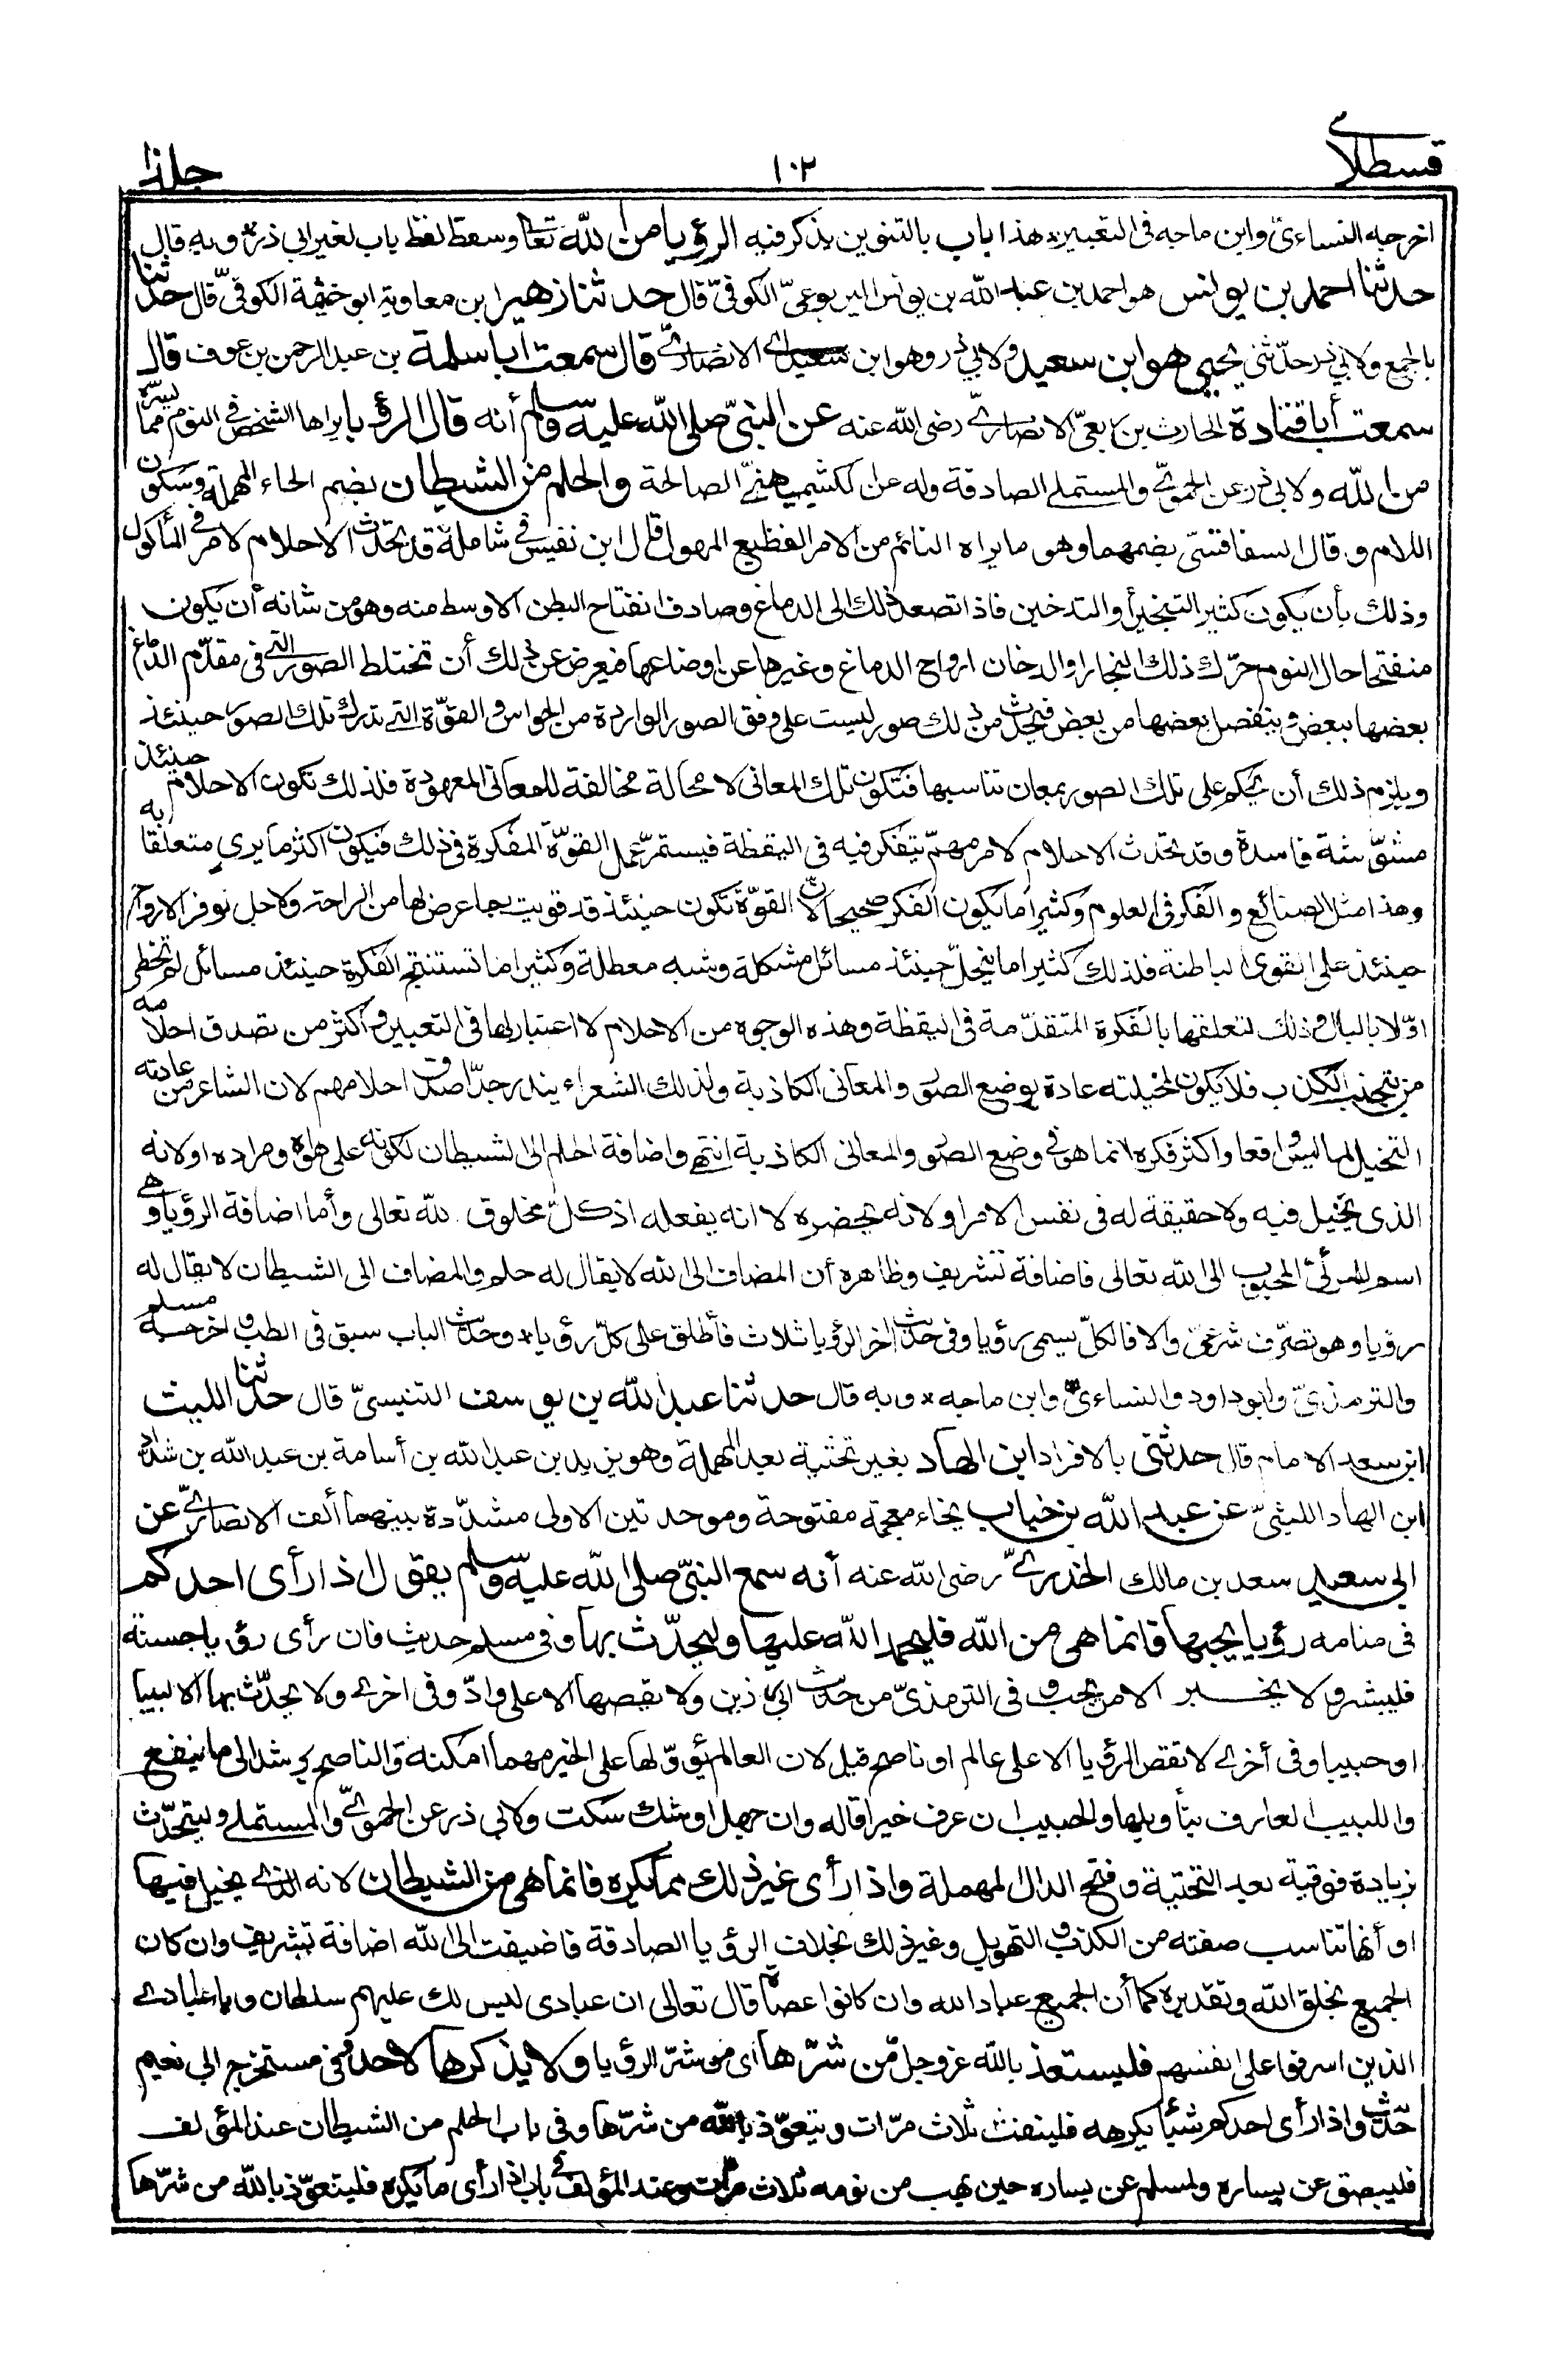 قسطلا
١٠٢
اخرجه النساءى وابن ماجه فى التعبير هذا باب بالتنوين يذكر فيه الرؤيا من الله تعا وسقط لفظ باب لغير ابي ذر وبه قال
حدثنا احمد بن يونس هو احمد بن عبد الله بن يونس اليربوعىّ الكوفىّ قال حدثنا زهير ابن معاوية ابو خيثمة الكوفىّ قال حدثنا
بالجمع ولابي ذر حدّثنى يحيى هو ابن سعيد ولابي ذر وهو ابن سعيد الانصارىّ قال سمعت أبا سلمة بن عبد الرحمن بن عوف قال
سمعت أبا قتادة الحارث بن ربعىّ الانصارىّ رضى الله عنه عن النبىّ صلى الله عليه وسلم أنه قال الرؤيا يراها الشخص فى النوم مما يسرّه
من الله ولابى ذر عن الحموىّ والمستملى الصادقة وله عن الكشميهنىّ الصالحة والحلم من الشيطان بضم الحاء المهملة وسكون
اللام وقال السفاقسىّ بضمهما وهو ما يراه النائم من الامر الفظيع المهول قال ابن نفيس فى شامله قد تحدث الاحلام لامر فى المأكول
وذلك بأن يكون كثير التبخير أو التدخين فاذا تصعد ذلك الى الدماغ وصادف انفتاح البطن الاوسط منه وهو من شانه أن يكون
منفتحا حال النوم حرّك ذلك البخار او الدخان ارواح الدماغ وغيرها عن اوضاعها فيعرض عن ذلك أن تختلط الصور التى فى مقدّم الدماغ
بعضها ببعض وينفصل بعضها من بعض فيحدث من ذلك صور ليست على وفق الصور الواردة من الحواس والقوّة التى تدرك تلك الصور حينئذ
ويلزم ذلك أن يحكم على تلك الصور بمعان تناسبها فتكون تلك المعانى لا محالة مخالفة للمعانى المعهودة فلذلك تكون الاحلام حينئذ
مشوّشة فاسدة وقد تحدث الاحلام لامر مهمّ يتفكر فيه فى اليقظة فيستمرّ عمل القوّة المفكرة فى ذلك فيكون اكثر ما يرى متعلقا به
وهذا مثل الصنائع والفكر فى العلوم وكثيرا ما يكون الفكر صحيحا لانّ القوّة تكون حينئذ قد قويت بما عرض لها من الراحة ولاجل توفر الارواح
حينئذ على القوى الباطنة فلذلك كثيرا ما ينحلّ حينئذ مسائل مشكلة وشبه معطلة وكثيرا ما تستنتج الفكرة حينئذ مسائل لم تخطر
اوّلا بالبال وذلك لتعلقها بالفكرة المتقدّمة فى اليقظة وهذه الوجوه من الاحلام لا اعتبار لها فى التعبير واكثر من تصدق احلامه
من يتجنب الكذب فلا يكون لمخيلته عادة بوضع الصور والمعانى الكاذبة ولذلك الشعراء يندر جدّا صدق احلامهم لان الشاعر من عادته
التخيل لما ليس واقعا واكثر فكره انما هو فى وضع الصور والمعانى الكاذبة انتهى واضافة الحلم الى الشيطان لكونه على هواه ومراده او لانه
الذى يخيل فيه ولا حقيقة له فى نفس الامر او لانه يحضره لا انه يفعله اذ كلّ مخلوق لله تعالى وأما اضافة الرؤيا وهى
اسم للمرئىّ المحبوب الى الله تعالى فاضافة تشريف وظاهره أن المضاف الى الله لا يقال له حلم والمضاف الى الشيطان لا يقال له
رؤيا وهو تصرّف شرعىّ والا فالكلّ يسمى رؤيا وفى حديث اخر الرؤيا ثلاث فأطلق على كلّ رؤيا وحديث الباب سبق فى الطب واخرجه مسلم
والترمذىّ وابو داود والنساءىّ وابن ماجه * وبه قال حدثنا عبد الله بن يوسف التنيسىّ قال حدّثنا الليث
ابن سعد الامام قال حدثنى بالافراد ابن الهاد بغير تحتية بعد المهملة وهو يزيد بن عبد الله بن أسامة بن عبد الله بن شدّاد
ابن الهاد الليثىّ عن عبد الله بن خباب بخاء معجمة مفتوحة وموحدتين الاولى مشدّدة بينهما ألف الانصارىّ عن
ابي سعيد سعد بن مالك الخدرىّ رضى الله عنه أنه سمع النبىّ صلى الله عليه وسلم يقول اذا رأى احدكم
فى منامه رؤيا يحبها فانما هى من الله فليحمد الله عليها وليحدّث بها وفى مسلم حديث فان رأى رؤيا حسنة
فليبشر ولا يخبر الا من يحب وفى الترمذىّ من حديث ابي رزين ولا يقصها الا على وادّ وفى اخرى ولا يحدّث بها الا لبيبا
او حبيبا وفى أخرى لا تقص الرؤيا الا على عالم او ناصح قيل لان العالم يؤوّلها على الخير مهما امكنه والناصح يرشد الى ما ينفع
واللبيب العارف بتأويلها والحبيب ان عرف خيرا قاله وان جهل او شك سكت ولابي ذر عن الحموىّ والمستملى وليتحدّث
بزيادة فوقية بعد التحتية وفتح الدال المهملة واذا رأى غير ذلك مما يكره فانما هى من الشيطان لانه الذى يخيل فيها
او أنها تناسب صفته من الكذب والتهويل وغير ذلك بخلاف الرؤيا الصادقة فاضيفت الى الله اضافة تشريف وان كان
الجميع بخلق الله وتقديره كما أن الجميع عباد الله وان كانوا عصاة قال تعالى ان عبادى ليس لك عليهم سلطان ويا عبادى
الذين اسرفوا على انفسهم فليستعذ بالله عز وجل من شرّها أى من شرّ الرؤيا ولا يذكرها لاحد وفى مستخرج ابي نعيم
حديث واذا رأى احدكم شيئا يكرهه فلينفث ثلاث مرّات ويتعوّذ بالله من شرّها وفى باب الحلم من الشيطان عند المؤلف
فليبصق عن يساره ولمسلم عن يساره حين يهب من نومه ثلاث مرّات وعند المؤلف فى باب اذا رأى ما يكره فليتعوّذ بالله من شرّها